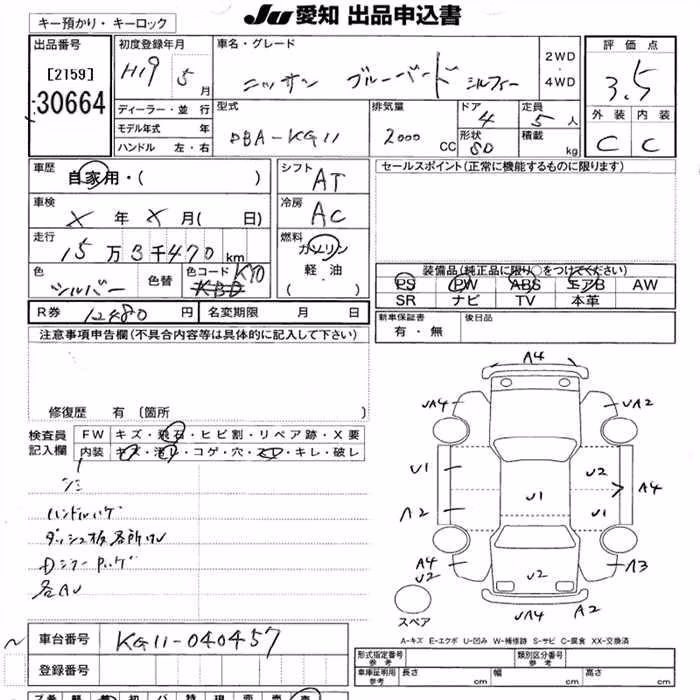 キー預かり・キーロック
JU 愛知 出品申込書
出品番号
[2159]
30664
初度登録年月
H19 5月
車名・グレード
ニッサン ブルーバード シルフィー
2WD
4WD
評価点
3.5
外装 内装
C C
ディーラー・並行
モデル年式 年
ハンドル 左・右
型式
DBA-KG11
排気量
2000 CC
ドア
4
定員
5人
形状
SD
積載
kg
車歴
自家用・( )
車検
X年X月( 日)
走行
15万3千470km
色
シルバー
色替
色コード KY0
シフト
AT
冷房
AC
燃料
ガソリン
軽・油
・( )
セールスポイント(正常に機能するものに限ります)
装備品(純正品に限り○をつけてください)
PS PW ABS エアB AW
SR ナビ TV 本革
R券 12480円
名変期限 月 日
新車保証書
有・無
後日品
注意事項申告欄(不具合内容等は具体的に記入して下さい)
修復歴 有 [箇所 ]
検査員
記入欄
FW キズ・飛石・ヒビ割・リペア跡・X要
内装 キズ・汚れ・コゲ・穴・スレ・キレ・破レ
シミ
ハンドルハゲ
ダッシュ板各所
各AU
A4
UA4 UA2
U1 U2
U1 A4
A2 U1
A4
U2 U2 A3
UA4 A2
スペア
A-キズ E-エクボ U-凹み W-補修跡 S-サビ C-腐食 XX-交換済
車台番号 KG11-040457
登録番号
形式指定番号
参考
類別区分番号
参考
車庫証明用
参考
長さ cm 幅 cm 高さ cm